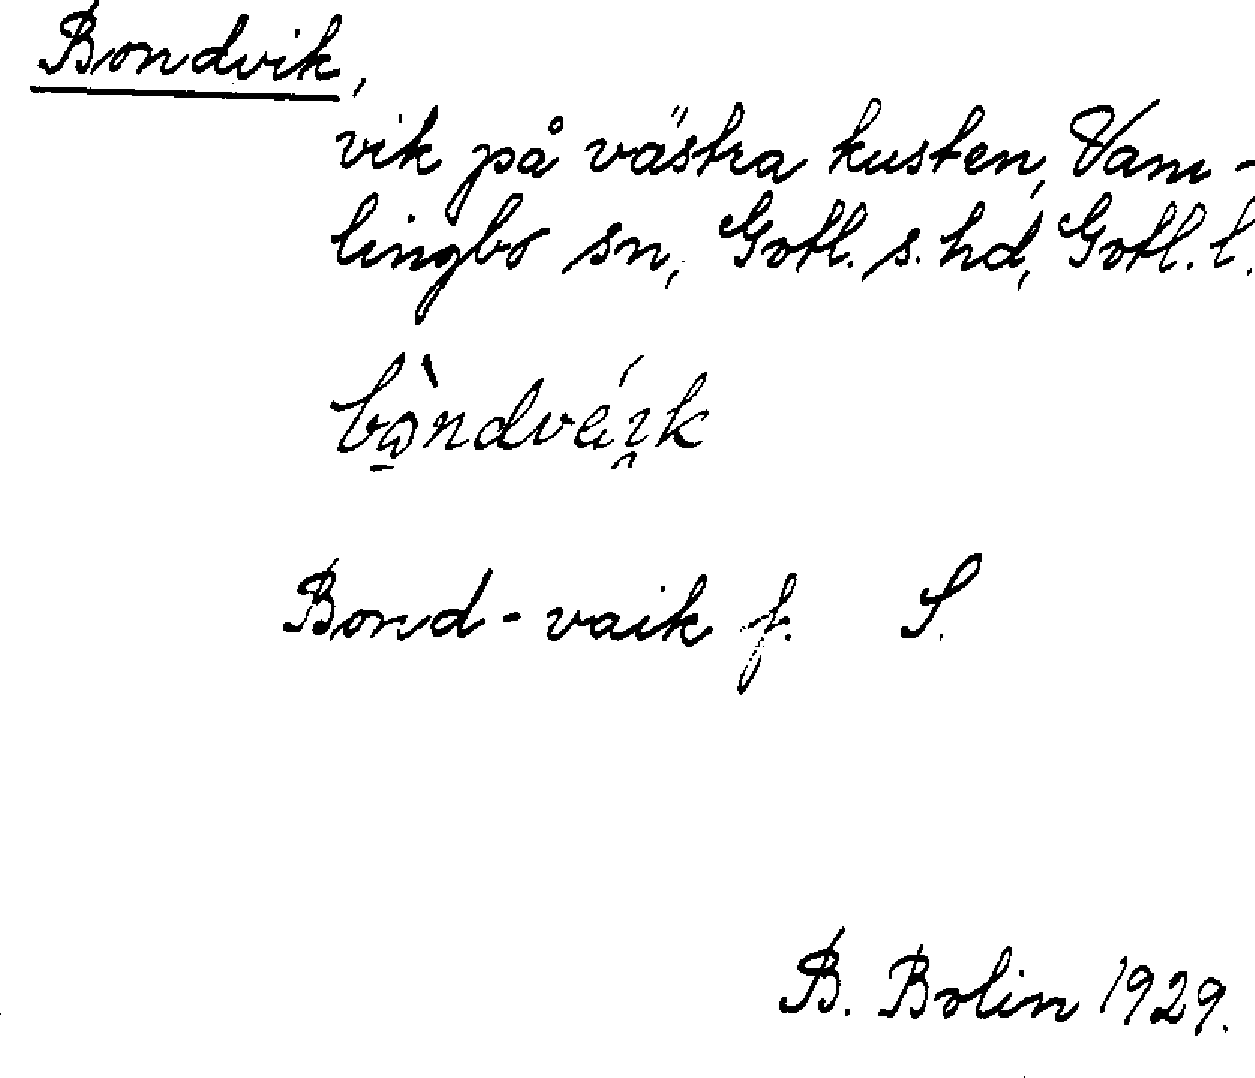 Bondvik,
vik på västra kusten, Vam-
lingbo sn, Gotl. s. hd, Gotl. l.
Bond-vaik f. S.
B. Bolin 1929.